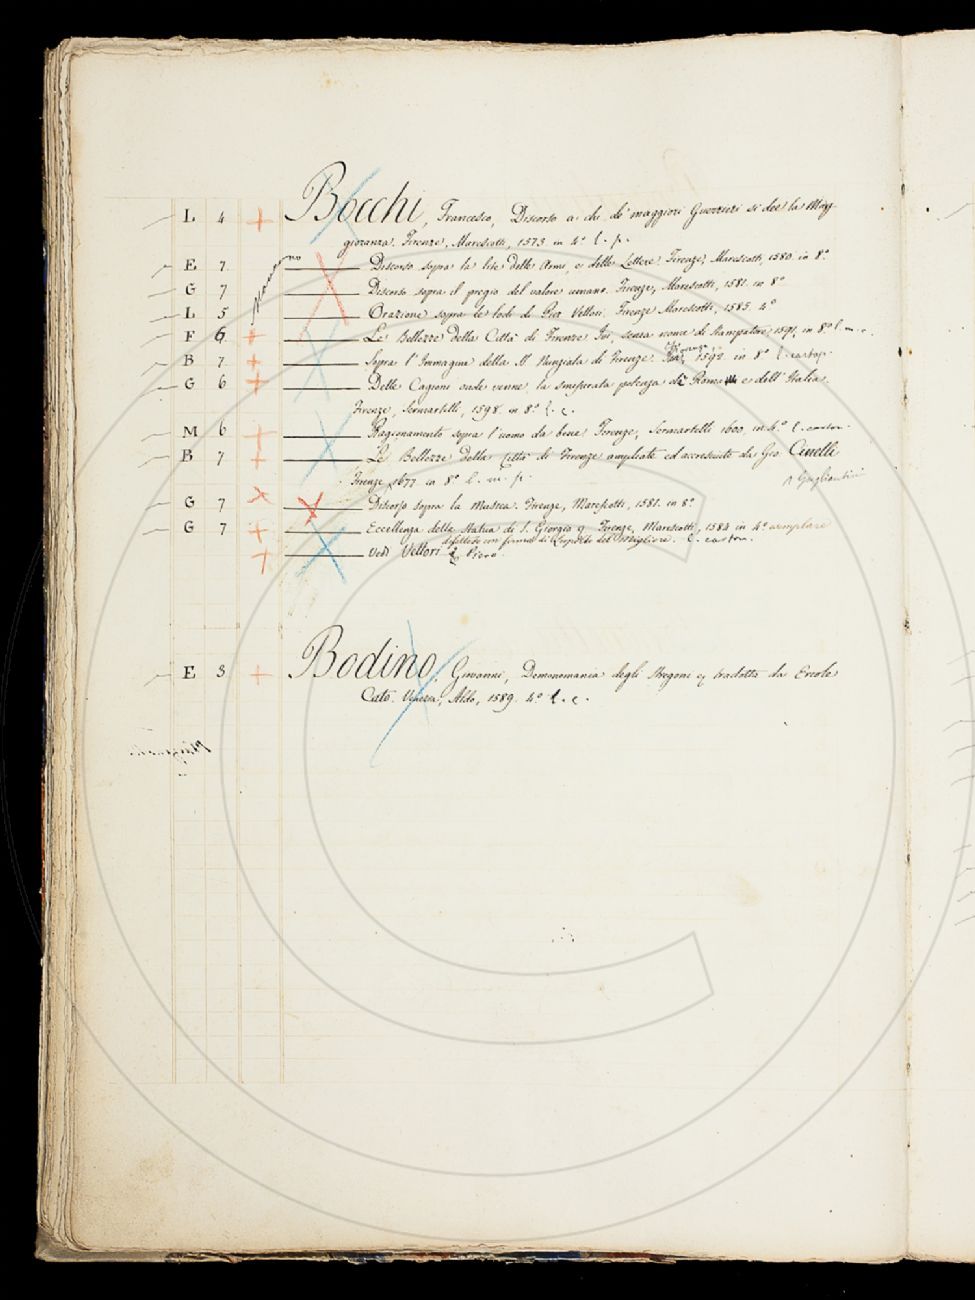 L 4 + Bocchi, Francesco, Discorso a chi de' maggiori Guerrieri si dee la Mag-
gioranza. Firenze, Marescotti, 1573. in 4° l. p.
E 7 Discorso sopra la lite delle Armi, e delle Lettere. Firenze, Marescotti, 1580. in 8°
G 7 Discorso sopra il pregio del valore umano. Firenze, Marescotti, 1581. in 8°
L 5 Orazione sopra le lodi di Pier Vettori. Firenze Marescotti, 1585. 4°
F 6. + Le Bellezze della Città di Firenze senza nome di Stampatore 1591, in 8°
B 7 + Sopra l'Immagine della SS. Nunziata di Firenze. 1592. in 8°
G 6 + Delle Cagioni onde venne la smisurata potenza di Roma e dell'Italia.
Firenze, Sermartelli, 1598. in 8° l. c.
M 6 + Ragionamento sopra l'uomo da bene Firenze, Sermartelli 1600, in 4° l. carton.
B 7 + Le Bellezze della Città di Firenze ampliate ed accresciute da Gio. Cinelli
Firenze 1677 in 8° l. m. p. Gugliantini
G 7 × Discorso sopra la Musica. Firenze, Marescotti, 1581. in 8°
G 7 + Eccellenza della Statua di S. Giorgio Firenze, Marescotti, 1584 in 4° esemplare
difettoso con firma di Leopoldo del Migliore. l. carton.
+ Vedi Vettori Piero.
E 3 + Bodino, Giovanni, Demonomania degli Stregoni tradotta da Ercole
Cato. Venezia, Aldo, 1589. 4° l. c.